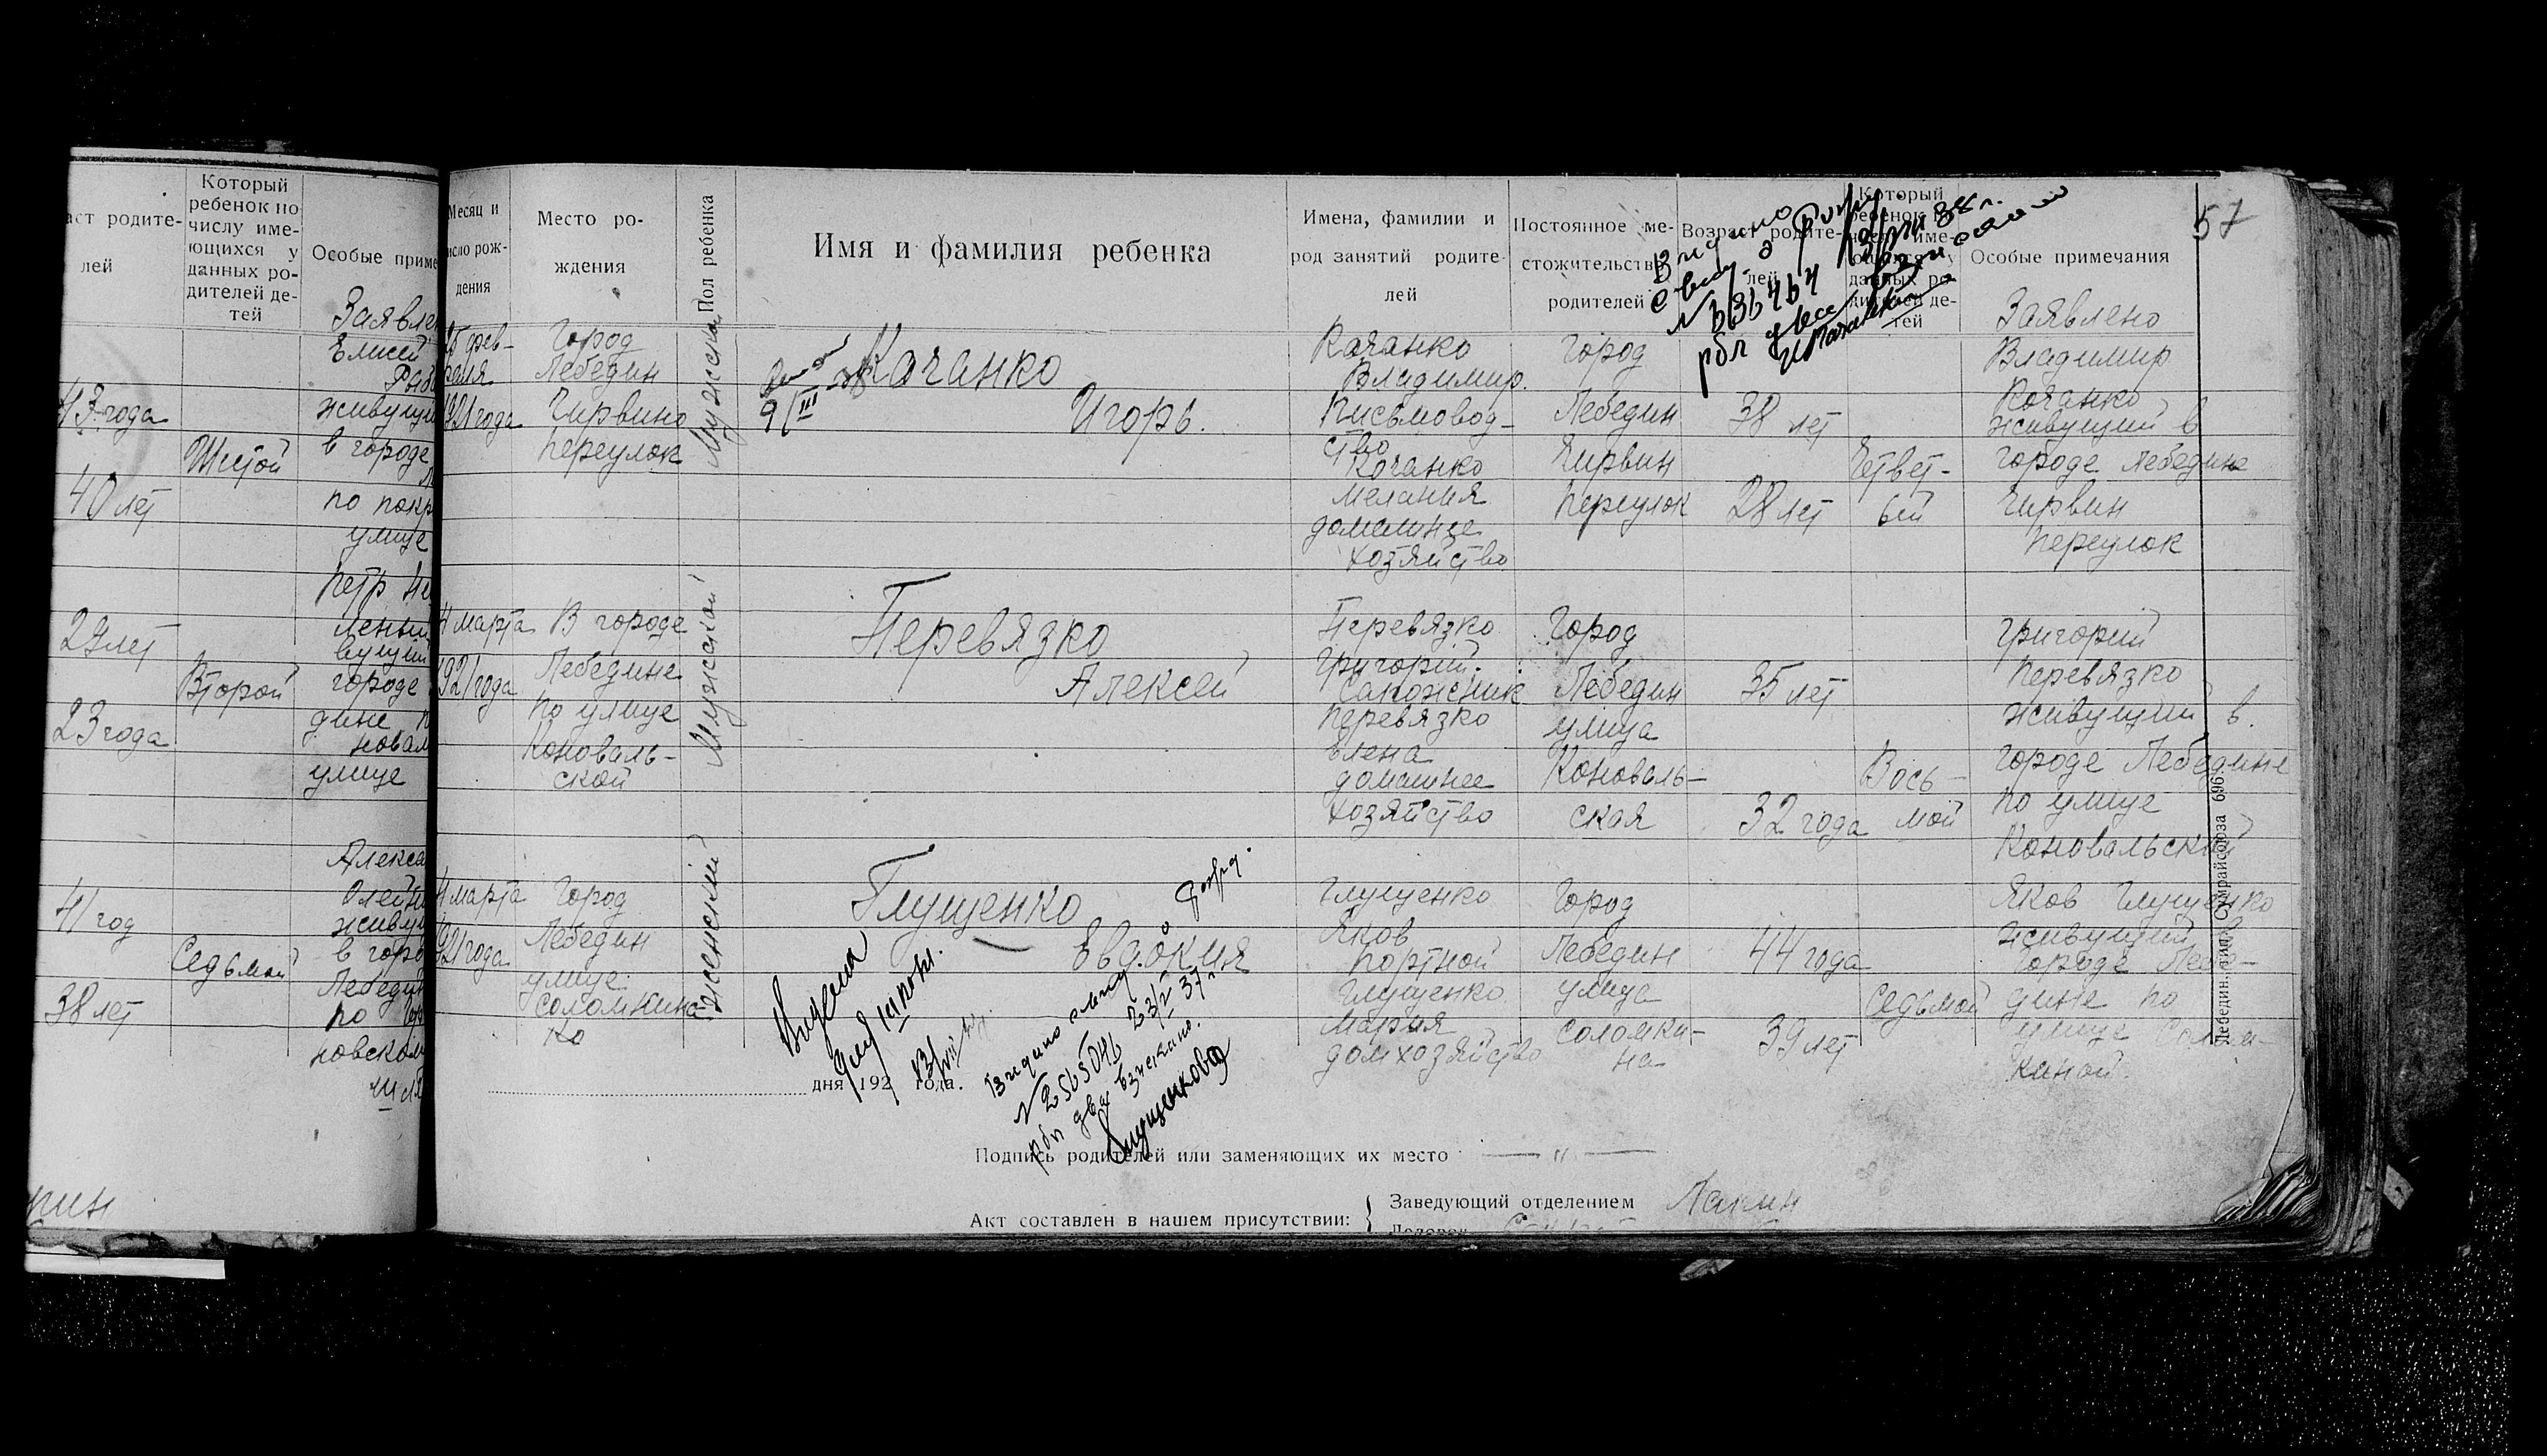 Который
ребенок по
числу име-
ющихся у
данных ро-
дителей де-
тей
аст родите-
лей
Особые приме
Заявлен
Елисей
Рыб
43 года
живущи
в городе
Шестой
40 лет
по покр
улице
Петр Не
29 лет
вущий
городе
Второй
дине п
23 года
новал
улице
Алекса
Олейн
41 год
живущ
в горо
Седьмой
Лебеди
38 лет
по
новском
Месяц и
число рож-
дения
Место ро-
ждения
Пол ребенка
Имя и фамилия ребенка
Имена, фамилии и
род занятий родите-
лей
Постоянное ме-
стожительство
родителей
Возраст родите-
лей
Который
ребенок по
числу име-
ющихся у
данных ро-
дителей де-
тей
Особые примечания
57
Видано
№ 336464
рбл два
Заявлено
15 фев-
раля
1921 года
Город
Лебедин
Чирвино
переулок
Мужской
9/III-38
Качанко
Игорь.
Качанко
Владимир.
Письмовод-
ство
Качанко
Мелания
домашнее
хозяйство
Город
Лебедин
Чирвин
переулок
38 лет
28 лет
Четвер-
тый
Владимир
Качанко
живущий в
городе Лебедине
Чирвин
переулок
4 марта
1921 года
В городе
Лебедине
по улице
Коноваль-
ской
Мужской
Перевязко
Алексей
Перевязко
Григорий.
Сапожник
Перевязко
Елена
домашнее
хозяйство
Город
Лебедин
улица
Коноваль-
ская
35 лет
32 года
Вось-
мой
Григорий
Перевязко
живущий в
городе Лебедине
по улице
Коновальской
4 марта
1921 года
Город
Лебедин
улице
Соломкина
Женский
Глущенко
Евдокия
Глущенко
Яков
портной
Глущенко
Мария
домхозяйство
Город
Лебедин
улица
Соломки-
на
44 года
39 лет
Седьмой
Яков Глущенко
живущий в
городе Лебе-
дине по
улице Солом-
киной.
Видана
для
13/VII
Видано
№ 2565046 23/V 37 г.
рбл два взискано.
Глущенкова
дня 192 года.
Подпись родителей или заменяющих их место — " —
Акт составлен в нашем присутствии:
Заведующий отделением Лакин
Лебедин. тип. Сумрайсоюза 696.